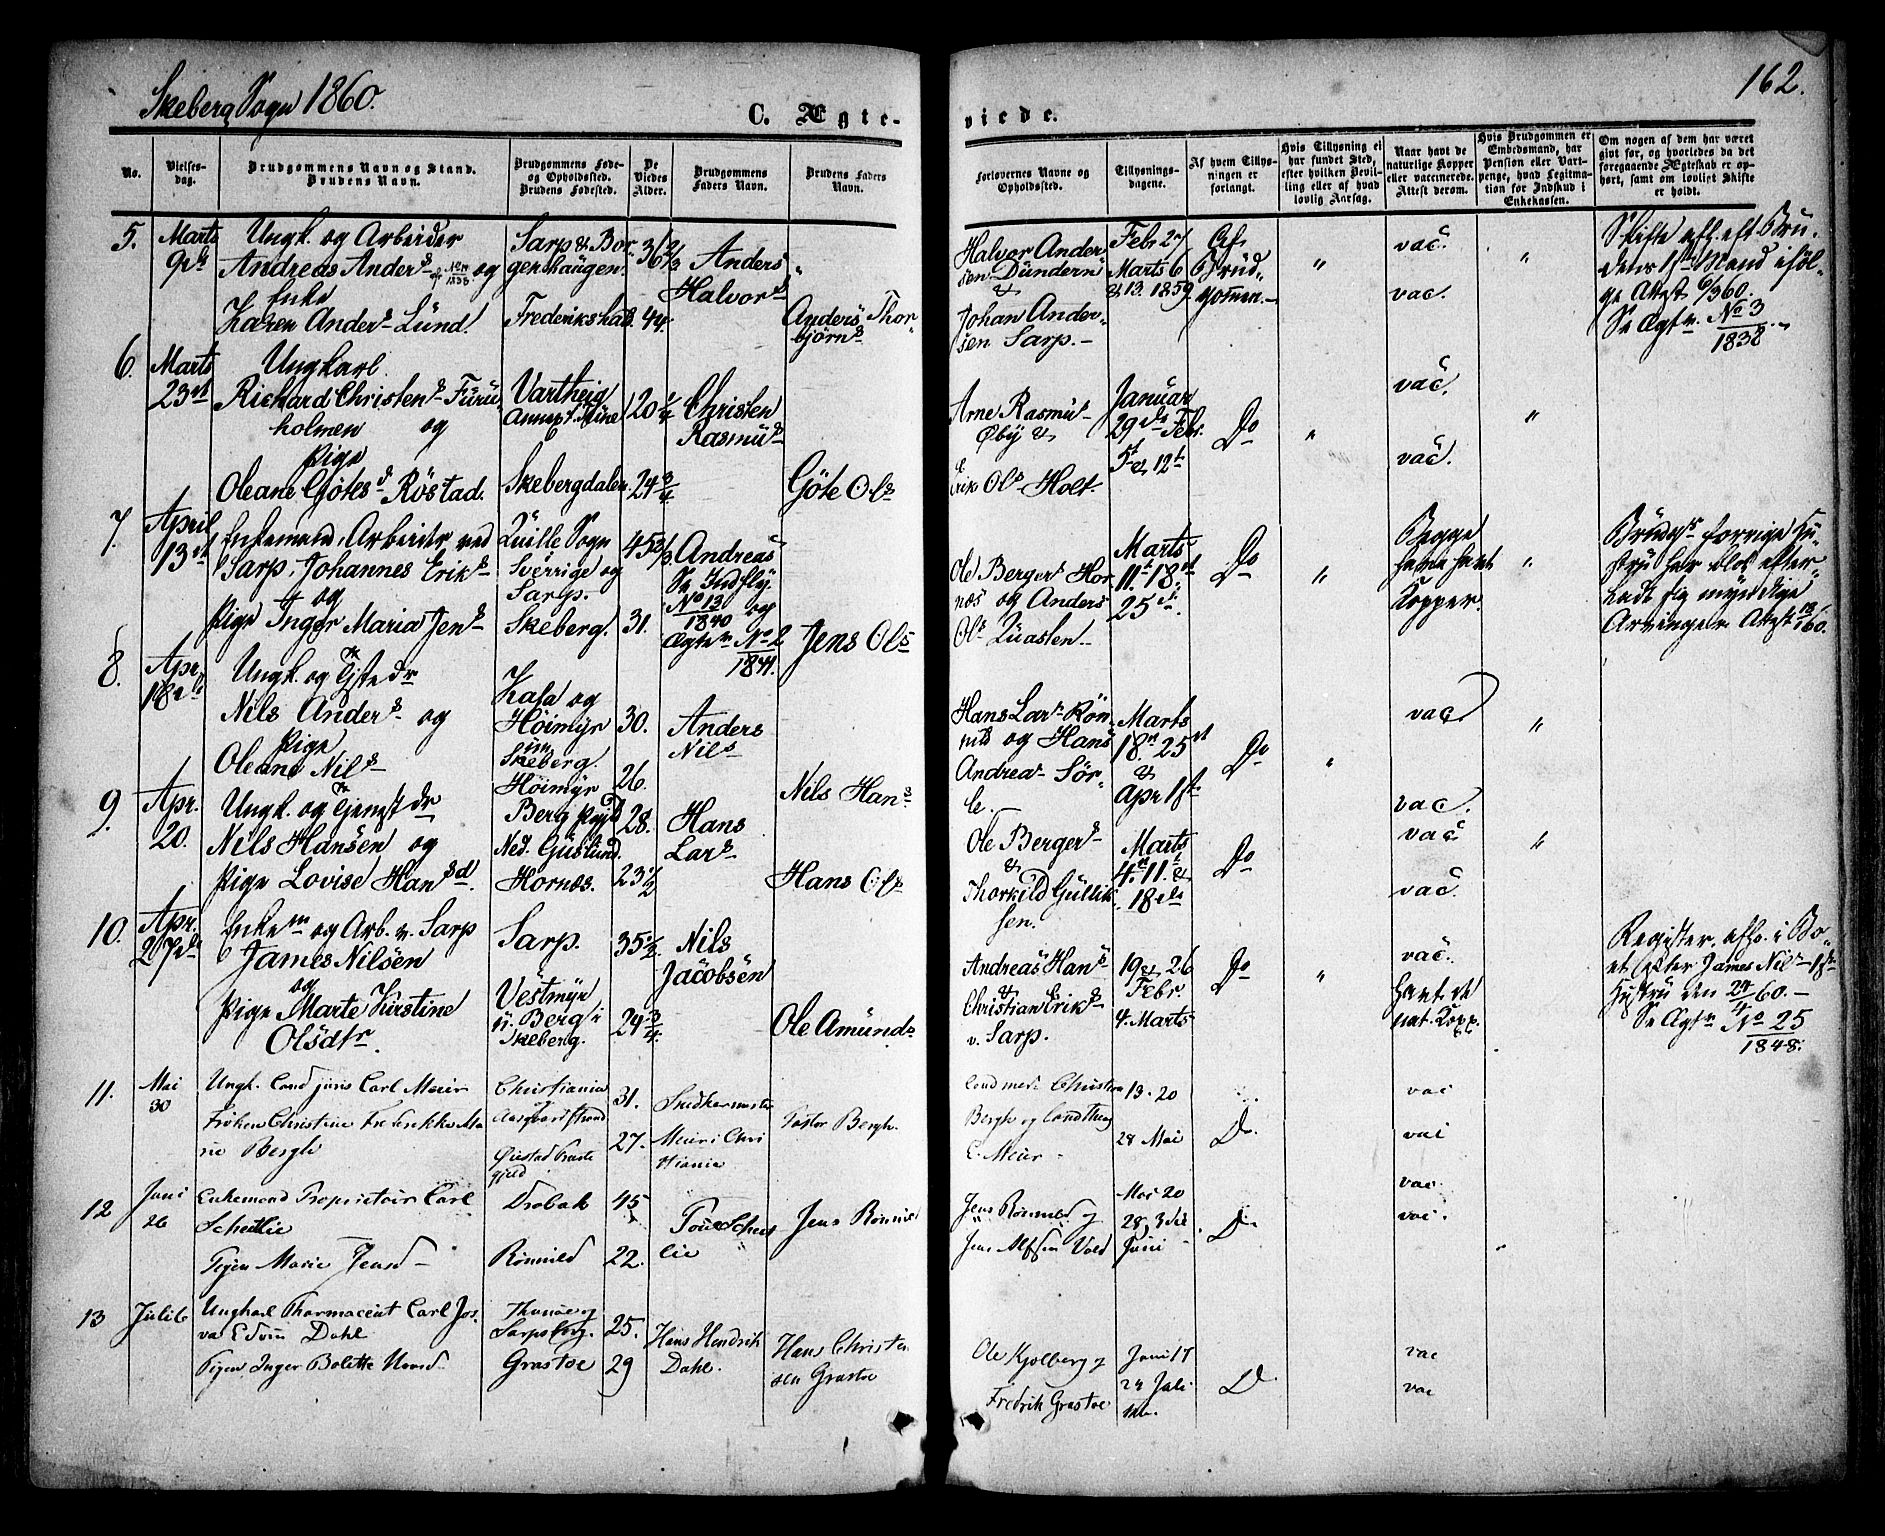 Skeberg Sogn 1860.
C. Ægte-
viede.
162.
No.
Vielses-
dag.
Brudgommens Navn og Stand.
Brudens Navn.
Brudgommens Føde-
og Opholdssted.
Brudens Fødested.
De
Viedes
Alder.
Brudgommens
Faders Navn.
Brudens Faders
Navn.
Forlovernes Navne og
Opholdssted.
Tillysnings-
dagene.
Af hvem Tillys-
ningen er
forlangt.
Hvis Tillysning ei
har fundet Sted,
efter hvilken Bevil-
ling eller af hvad
lovlig Aarsag.
Naar havt de
naturlige Kopper
eller vaccinerede.
Attest derom.
Hvis Brudgommen er
Embedsmand, har
Pension eller Vart-
penge, hvad Legitima-
tion for Indskud i
Enkekassen.
Om nogen af dem har været
gift før, og hvorledes da det
foregaaende Ægteskab er op-
hørt, samt om lovligt Skifte
er holdt.
5.
Marts
9de
Ungk. og Arbeider
Andreas Anders og
Enke
Karen Anders Lund.
Sarp & Bor-
gershaugen.
Frederikshald.
36 2/3
44.
Anders
Halvors
Anders Thor-
bjørns
Halvor Ander-
sen Dundern
&
Johan Ander-
sen Sarp.
Febr 27
Marts 6
& 13. 1859
Af
Brud-
gommen.
"
vac.
vac.
"
Skifte afh. eft. Bru-
dens 1ste Mand iføl-
ge Attest 6/3 60.
Se Ægtev. No 3
1838.
6.
Marts
23de
Ungkarl
Richard Christens Furu-
holmen og
Pige
Oleane Gøtesd Røstad.
Vartheig
Annex t. Tune
Skebergdalen.
20 1/4
24 3/4
Christen
Rasmus
Gøte Ols
Arne Rasmus
Øby &
Erik Ols Holt.
Januar
29de Febr.
5t & 12t
Do
"
vac.
vac.
"
7.
April
13de
Enkemand, Arbeider ved
Sarp, Johannes Eriks
og
Pige Inger Maria Jens
Quille Sogn
Sverrige og
Sarp.
Skeberg.
45 2/3
31.
Andreas
Se Indfly.
No 13
1840 og
Ægtev No 2
1841.
Jens Ols
Ole Bergers Hor-
næs og Anders
Ols Quasten.
Marts
11te 18de
25de
Do
"
Begge
have havt
Kopper.
"
Brudg.s forrige Hu-
stru har blot efter-
ladt sig myndige
Arvinger
8.
Apr.
18de
Ungk. og
Nils Anders og
Pige
Oleane Nils
Kala og
Höimyr
in
Skeberg.
Höimyr
30.
26.
Anders
Nils
Nils Hans
Hans Lars Røn-
nild og Hans
Andreas Sör-
le.
Marts
18de 25de
&
Apr 1ste
Do
"
vac.
vac.
"
9.
Apr.
20.
Ungk. og
Nils Hansen og
Pige Lovise Hansd.
Berg Pgjd
Ned. Guslund.
Hornæs.
28.
23 1/2
Hans
Lars
Hans Ols
Ole Bergers
&
Thorkild Gullik-
sen.
Marts
4de 11. &
18de
Do
vac
vac.
"
10.
Apr.
27de
Enkem og Arb. v. Sarp
James Nilsen
og
Pige Marte Kirstine
Olsdtr.
Sarp.
Vestmyr
u. Berg i
Skeberg.
35 1/2
24 3/4
Nils
Jacobsen
Ole Amunds
Andreas Hans
&
Christian Eriks
v. Sarp.
19 & 26
Febr.
4. Marts
Do
"
vac.
havt de
nat. Kopp.
Register. afh. i Bo-
et efter James Nils 1ste
Hustru den 24/4 60.
Se Ægtv No 25
1848.
11.
Mai
30
Ungk. Cand juris Carl Meier
Frøken Christine Frederikke Ma-
rie Bergh
Christiania
og
Aasgaardstrand
Øiestad Præste
gjeld
31.
27.
Meier i Chri
stiania
Pastor Bergh.
Cand med. Christian
Bergh og Cand Theo
C. Meier
13. 20
28 Mai
Do
vac
vac
12
Juni
26
Enkemand Proprietair Carl
Scheitlie
Pigen Marie Jensd
Drøbak
Rønnild
45
22.
Jens Rønnild
Jens Rønnild og
Jens Alfsen Vold
Mai 20
28, 3die
Juni
Do
vac.
vac.
13
Juli 6
Ungkarl Pharmaceut Carl Jos-
va Edvin Dahl
Pigen Inger Bolette Hansd.
Sarpsborg.
Grastoe
25.
29
Hans Hendrik
Dahl.
Hans Christen
sen Grastoe
Ole Kjølberg og
Fredrik Grastoe
Juni 17
24 Juli
1ste.
Do
vac
vac